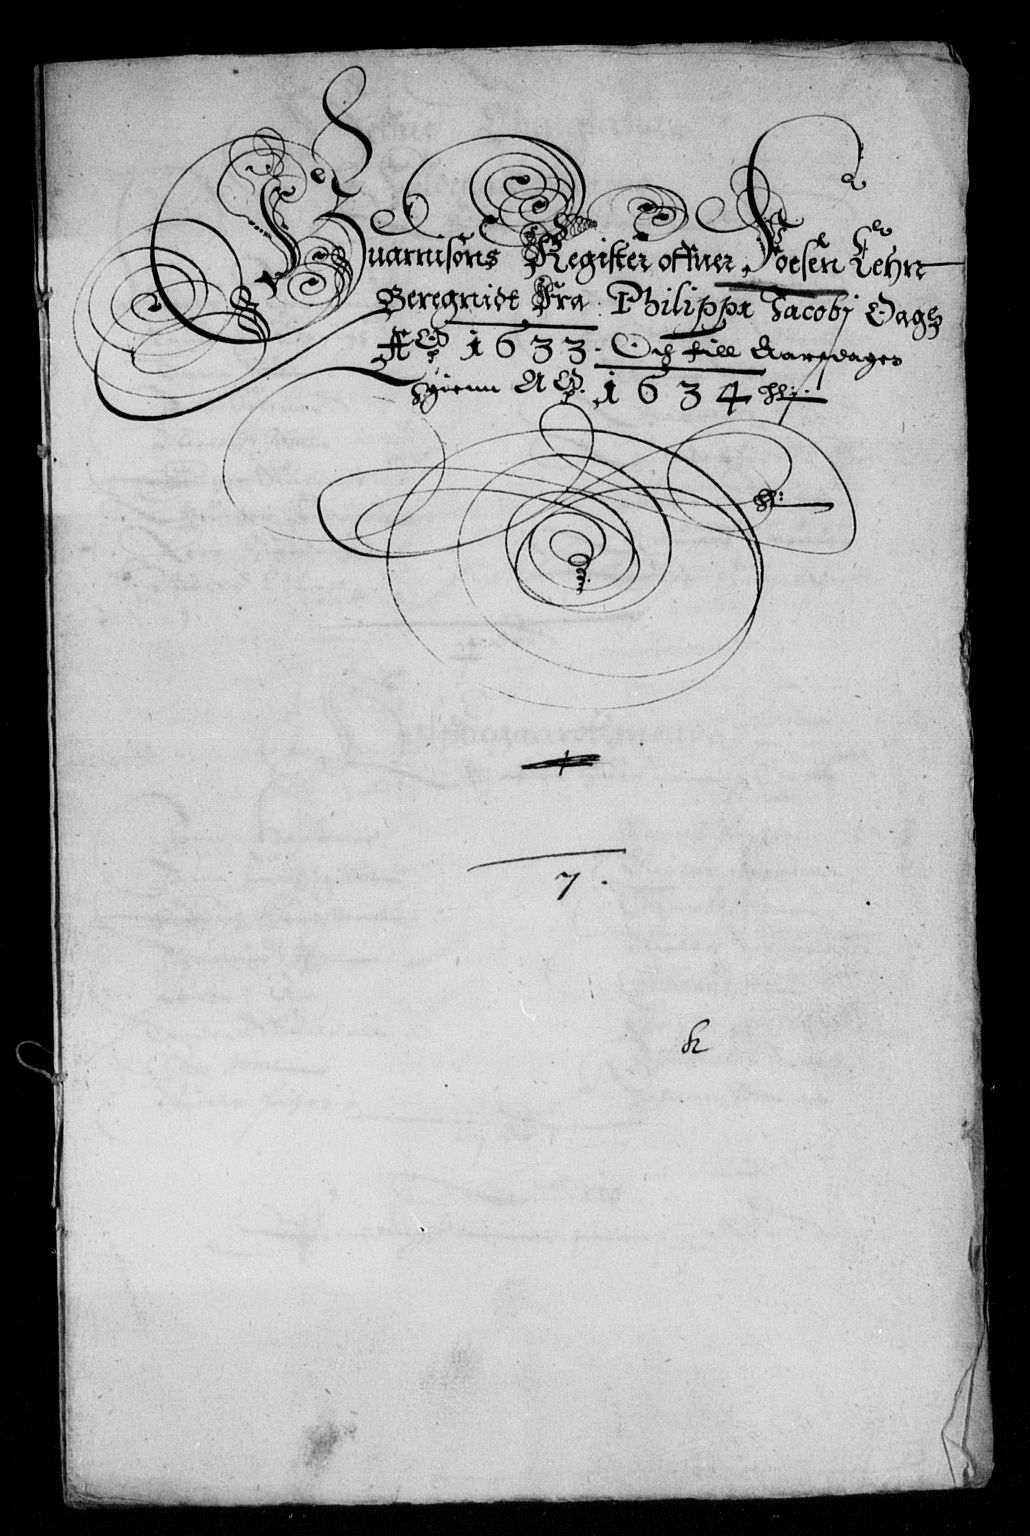 Guarnisons Register offuer Foesen Lehn
Beregnidt Fra Philippi Jacobj Dagh
A⁰ 1633. Och till Aarsdagen
igienn A⁰. 1634
7.